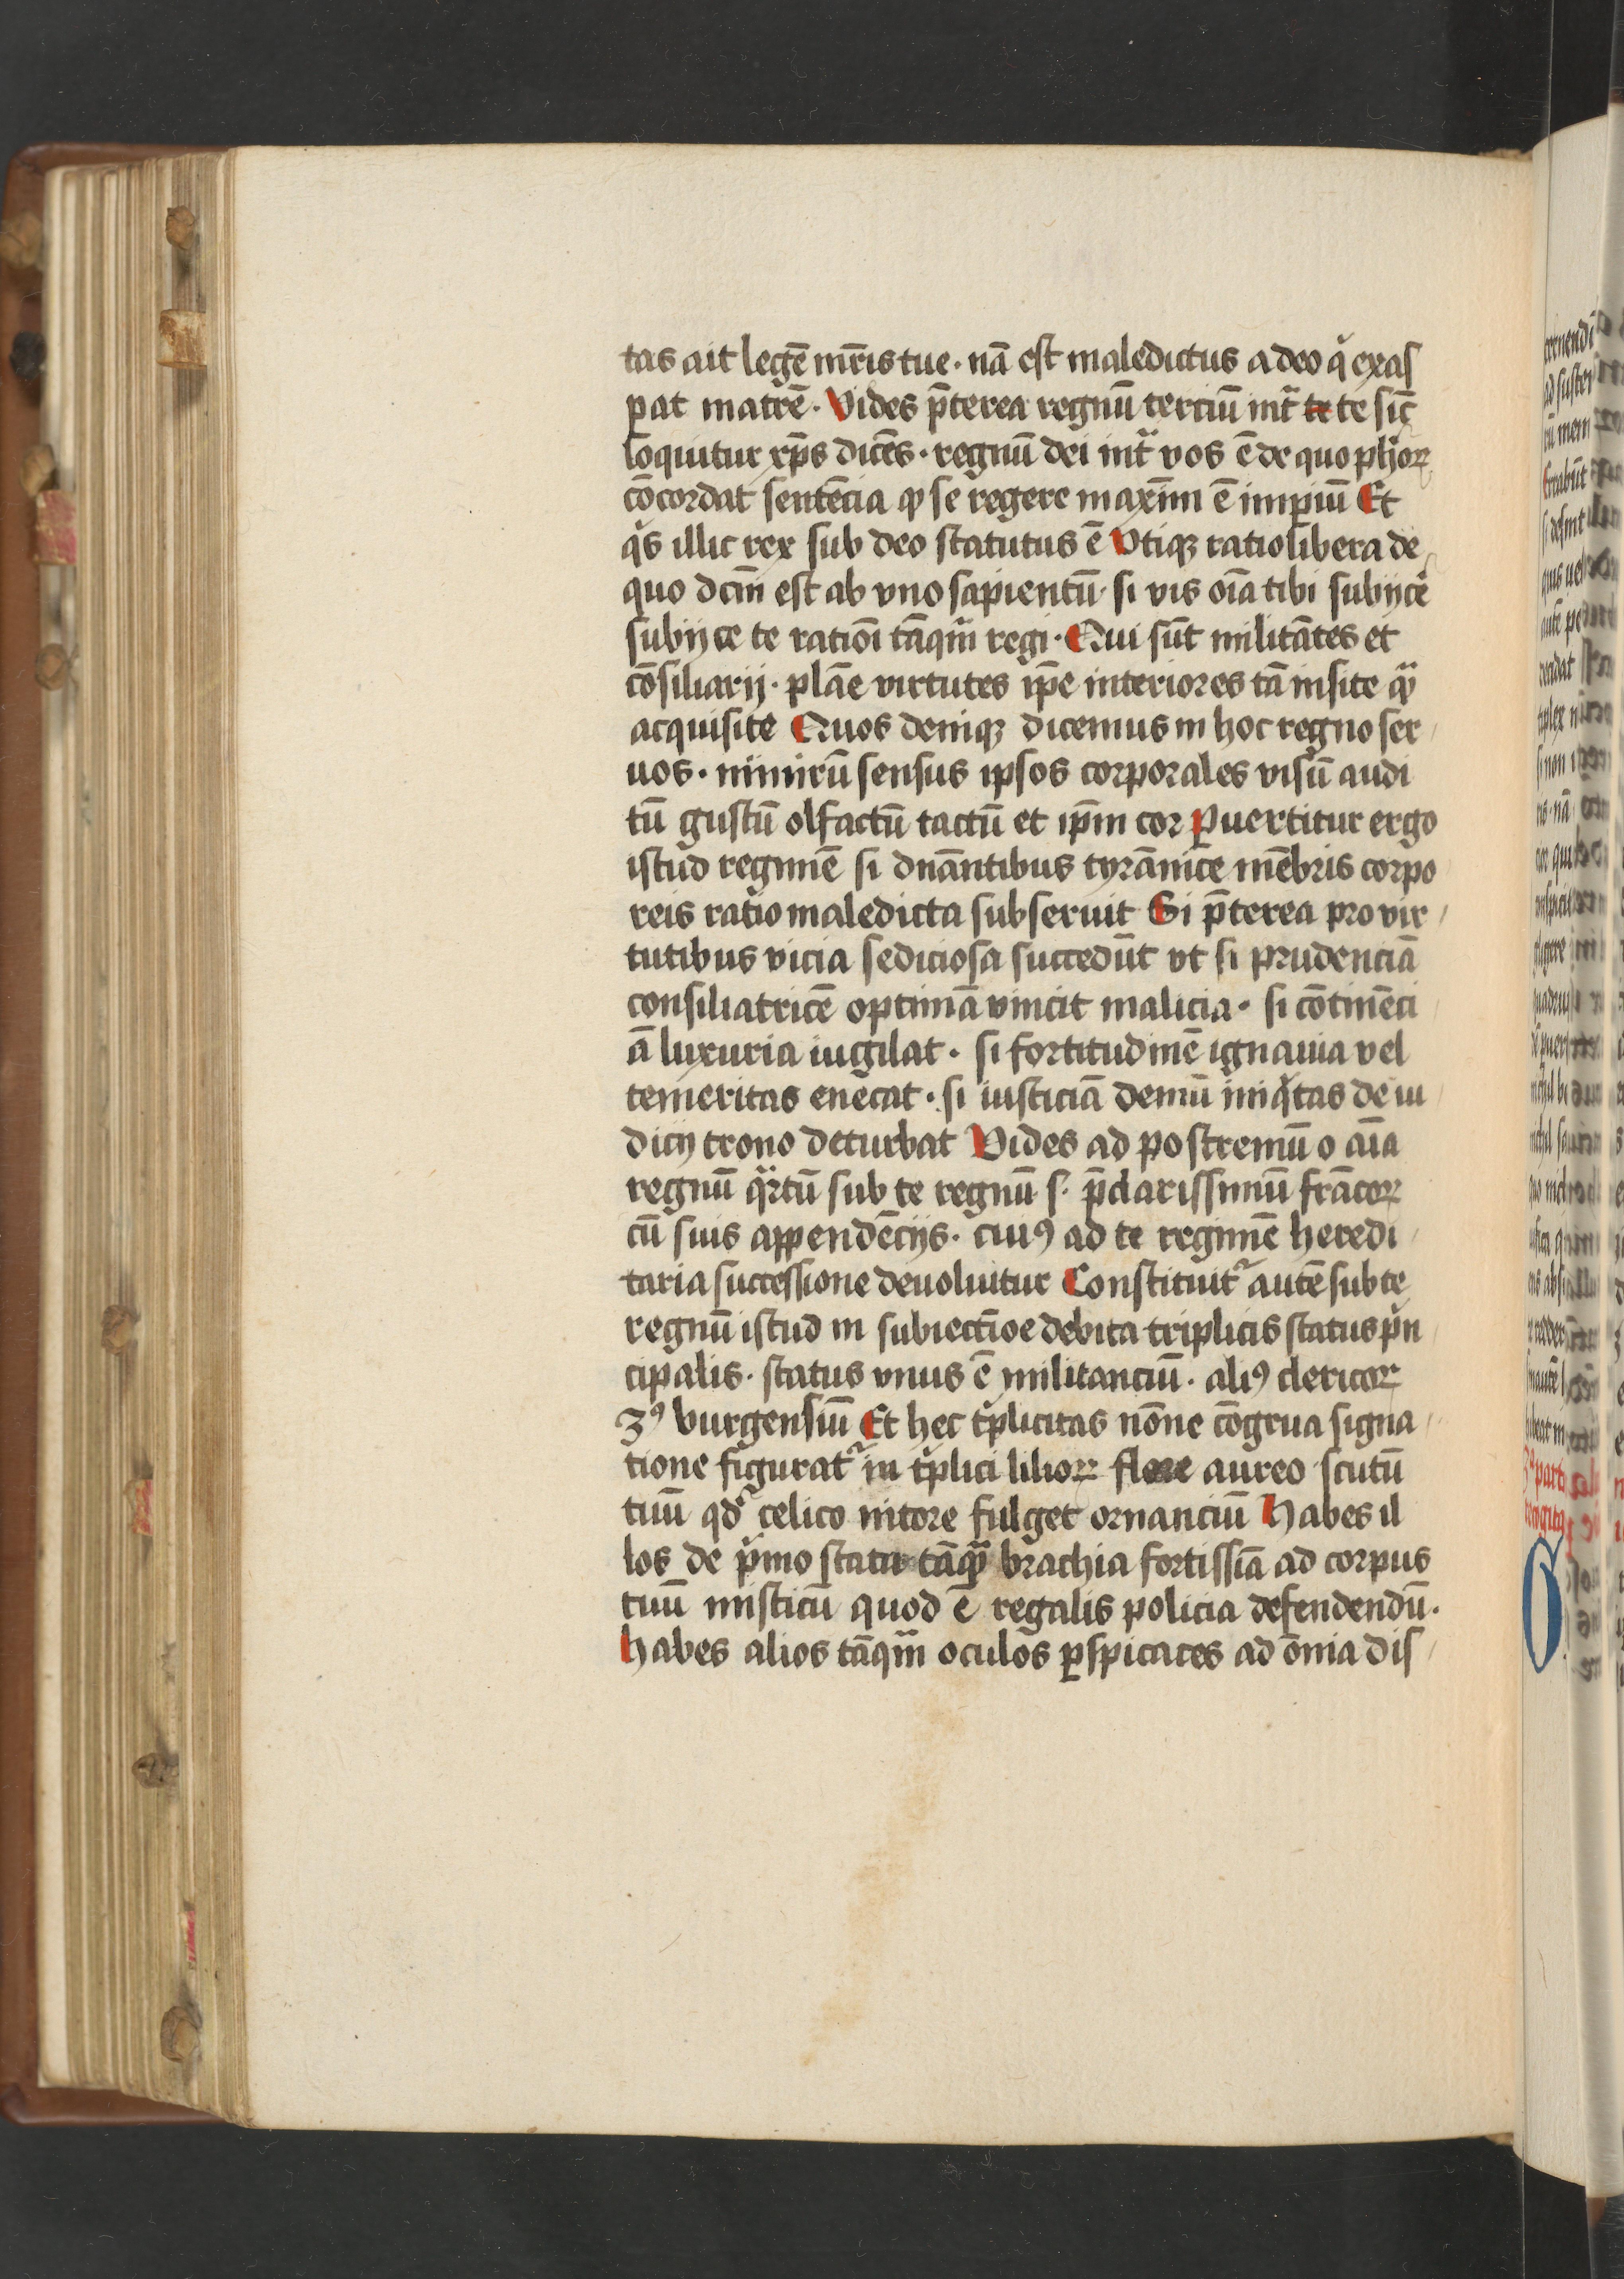 tas ait legē mr̄is tue · nā est maledictus a deo q̇ exas
pat matrē · Vides p̄terea regnū terciū int̄ te te sic̄
loquitur xp̄s dicēs · regnū dei int̄ vos ē de quo ph̄oꝝ
cōcordat sentēcia ꝙ se regere maxīm ē imꝑiū Et
q̇s illic rex sub deo statutus ē Vtiqꝫ ratio libera de
quo dcm̄ est ab vno sapientū · si vis oīa tibi subijcē
subijce te rationi tāqm̄ regi · Qui sūt militātes et
cōsiliarij · plāe virtutes ip̄e interiores tā insite qᷓ
acquisite Quos deniqꝫ dicemus in hoc regno ser
uos · nimirū sensus ipsos corporales visū audi
tū gustū olfactū tactū et ip̄m cor ꝑuertitur ergo
istud regimē si dn̄antibus tyrānice mēbris corpo
reis ratio maledicta subseruit Si p̄terea pro vir
tutibus vicia sediciosa succedūt vt si prudenciā
consiliatricē optimā vincit malicia · si cōtinēci
ā luxuria iugilat · si fortitudinē ignauia vel
temeritas enecat · si iusticiā demū iniq̇tas de iu
dicij trono deturbat Vides ad postremū o aīa
regnū qᷓrtū sub te regnū s · p̄clarissimū frācoꝝ
cū suis appendēcijs · cuiꝰ ad te regimē heredi
taria successione deuoluitur Constituit᷑ autē sub te
regnū istud in subiectiōe debita triplicis status ṗn
cipalis · status vnus ē militanciū · aliꝰ clericoꝝ
3ꝰ burgensiū Et hec tṗlicitas nōne cōgrua signa
tione figurat᷑ in tṗlici lilioꝝ flore aureo scutū
tuū qd᷑ celico nitore fulget ornanciū Habes il
los de ṗmo statu tāqᷓ brachia fortissīa ad corpus
tuū misticū quod ē regalis policia defendendū ·
Habes alios tāqm̄ oculos ꝑspicaces ad ōnia dis